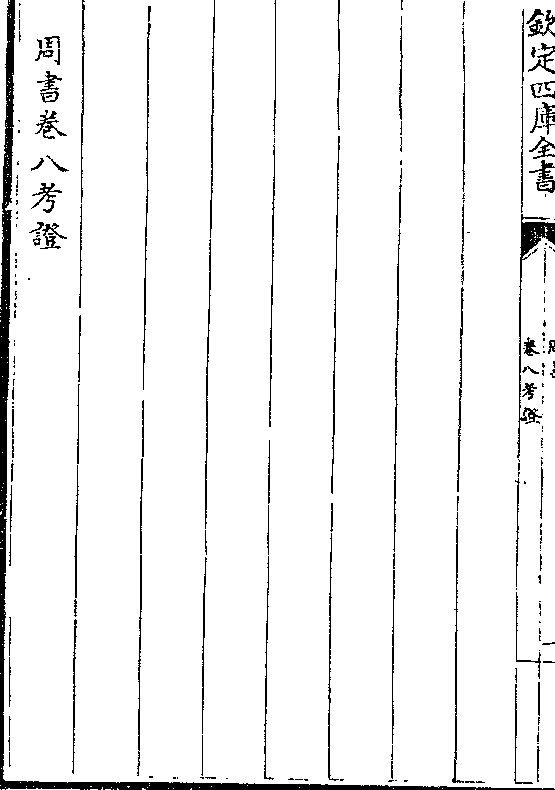 欽定四庫全書
周書
卷八考證
周書卷八考證